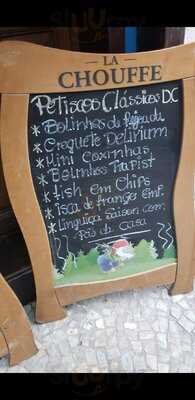 LA
CHOUFFE
Petiscos Clássicos DC
* Bolinhos de feijoada
* Croquete Delirium
* Mini Coxinhas
* Bolinhos
* Fish em Chips
* isca de frango Emp.
* Linguiça saison com
Pão da Casa